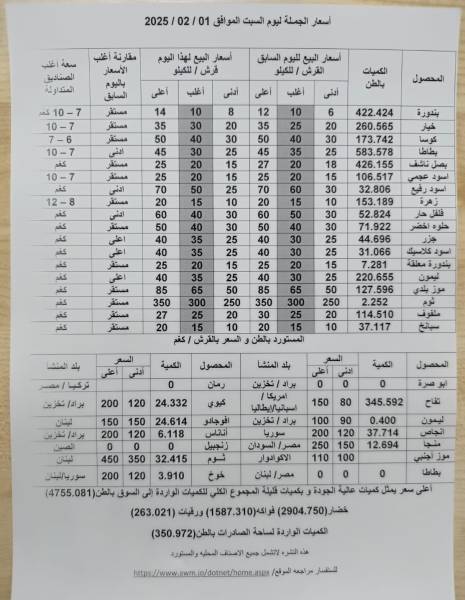 أسعار الجملة ليوم السبت الموافق 01 / 02 / 2025
المحصول الكميات بالطن أسعار البيع لليوم السابق القرش / للكيلو أسعار البيع لهذا اليوم قرش / للكيلو مقارنة أغلب الأسعار باليوم السابق سعة أغلب الصناديق المتداولة
أدنى أغلب أعلى أدنى أغلب أعلى
بندورة 422.424 6 10 12 8 10 14 مستقر 7 – 10 كغم
خيار 260.565 20 25 35 20 30 35 مستقر 7 – 10
كوسا 173.742 30 40 50 30 40 50 مستقر 6 – 7
بطاطا 583.578 25 35 45 25 30 45 أدنى 7 – 10
بصل ناشف 426.155 18 20 27 15 20 25 مستقر كغم
اسود عجمي 106.517 15 20 25 15 20 25 مستقر 7 – 10
اسود رفيع 32.806 30 60 70 25 50 70 ادنى كغم
زهرة 153.189 10 15 20 10 15 20 مستقر 8 – 12
فلفل حار 52.824 30 50 60 30 40 60 ادنى كغم
حلوه اخضر 71.922 30 40 50 30 40 50 مستقر كغم
جزر 44.696 25 30 40 25 35 40 اعلى كغم
اسود كلاسيك 31.066 25 30 40 25 35 40 اعلى كغم
بندورة معلقة 7.281 15 20 25 15 20 25 مستقر كغم
ليمون 220.655 25 30 40 25 35 40 اعلى كغم
موز بلدي 127.596 50 65 85 50 65 85 مستقر كغم
ثوم 2.252 250 300 350 250 300 350 مستقر كغم
ملفوف 114.510 20 25 30 20 25 27 مستقر كغم
سبانخ 37.117 10 15 20 10 15 20 مستقر كغم
المستورد بالطن و السعر بالقرش / كغم
المحصول الكمية السعر بلد المنشأ المحصول الكمية السعر بلد المنشا
أدنى أعلى أدنى أعلى
ابو صرة 0 0 0 براد / تخزين رمان 0 0 0 تركيا / مصر
تفاح 345.592 80 150 امريكا / اسبانيا/ايطاليا كيوي 24.332 120 200 براد/ تخزين
ليمون 0.400 90 100 براد/ تخزين افوجادو 24.614 150 150 لبنان
انجاص 37.714 120 200 سوريا أناناس 6.118 120 200 براد/ تخزين
منجا 12.694 150 250 مصر/ السودان زنجبيل 0 0 0 الصين
موز أجنبي 100 110 الاكوادوار ثـــوم 32.415 350 450 لبنان
بطاطا 0 0 0 مصر/ لبنان خوخ 3.910 120 200 سوريا/لبنان
أعلى سعر يمثل كميات عالية الجودة و بكميات قليلة المجموع الكلي للكميات الواردة إلى السوق بالطن(4755.081)
خضار(2904.750) فواكه(1587.310) ورقيات (263.021)
الكميات الواردة لساحة الصادرات بالطن(350.972)
هذه النشره لاتشمل جميع الاصناف المحليه والمستورد
للاستفسار مراجعه الموقع/ https://www.awm.jo/dotnet/home.aspx